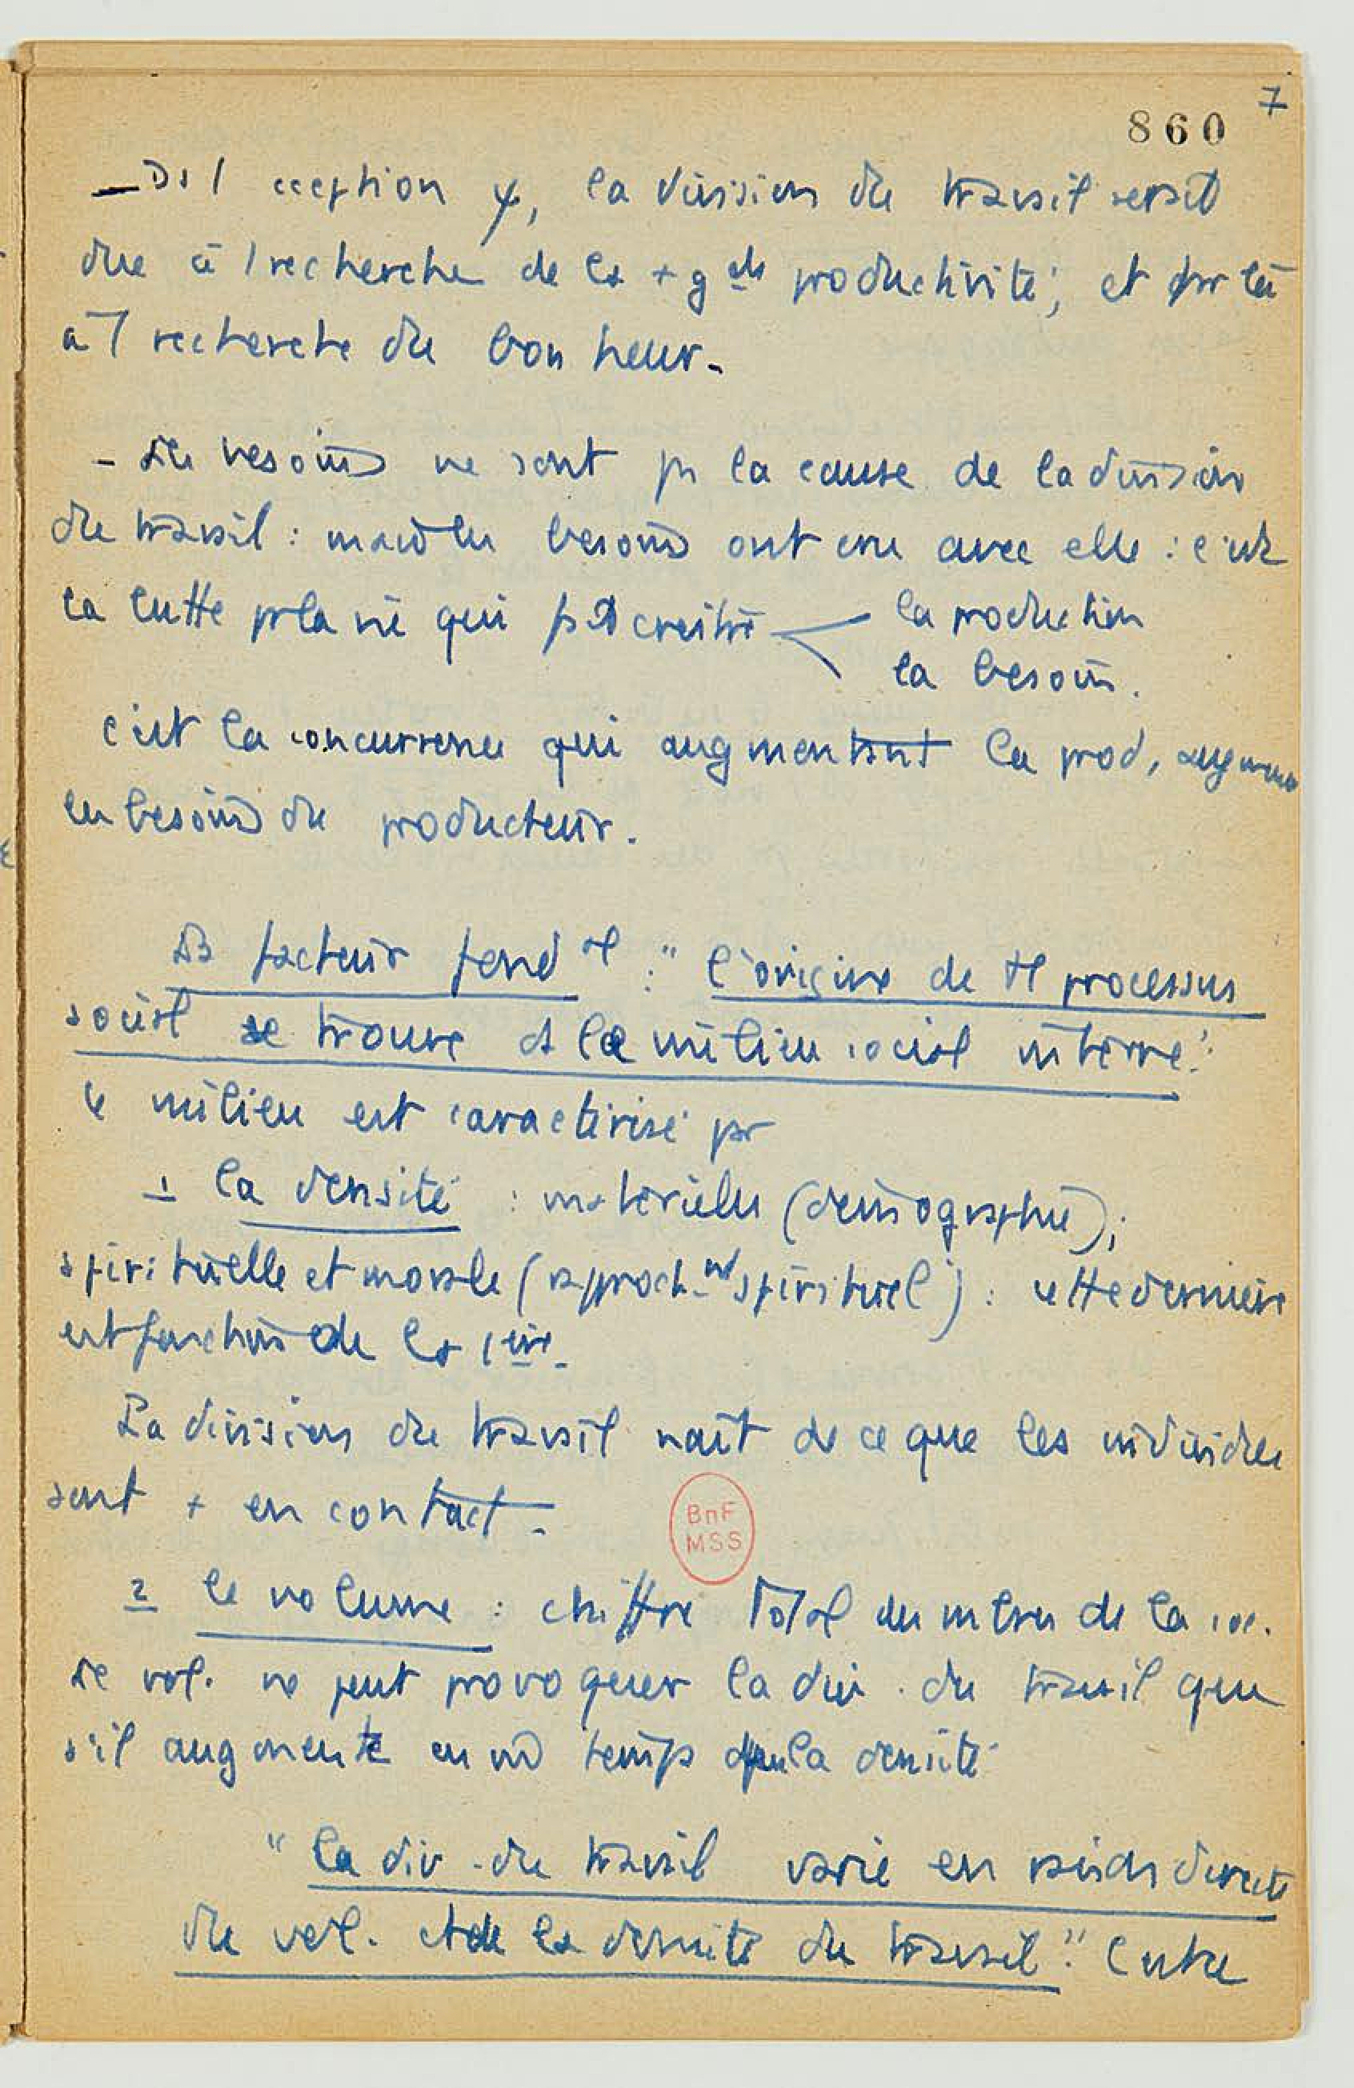 7
860
— Ds l' cception ψ, la division du travail serait
due à l recherche de la + gde productivité, et par là
à l recherche du bonheur.
- Les besoins ne sont ps la cause de la division
du travail : mais les besoins ont cru avec elle : c'est
la lutte pr la vie qui fait croître la production
la besoin.
c'est la concurrence qui augmentant la prod, augmente
les besoins du producteur.
facteur fondal : "l'origine de tt processus
social se trouve ds le milieu social interne".
le milieu est caractérisé par
1 la densité : matérielle (démographie) ;
spirituelle et morale (rapprochmt spirituel) : cette dernière
est fonction de la 1ère.
La division du travail naît de ce que les individus
sont + en contact.
BnF
MSS
2 le volume : chiffre total des mbres de la soc.
Le vol. ne peut provoquer la div. du travail que
s'il augmente en m temps que la densité
"la div. du travail varie en raison directe
du vol. et de la densité du travail".